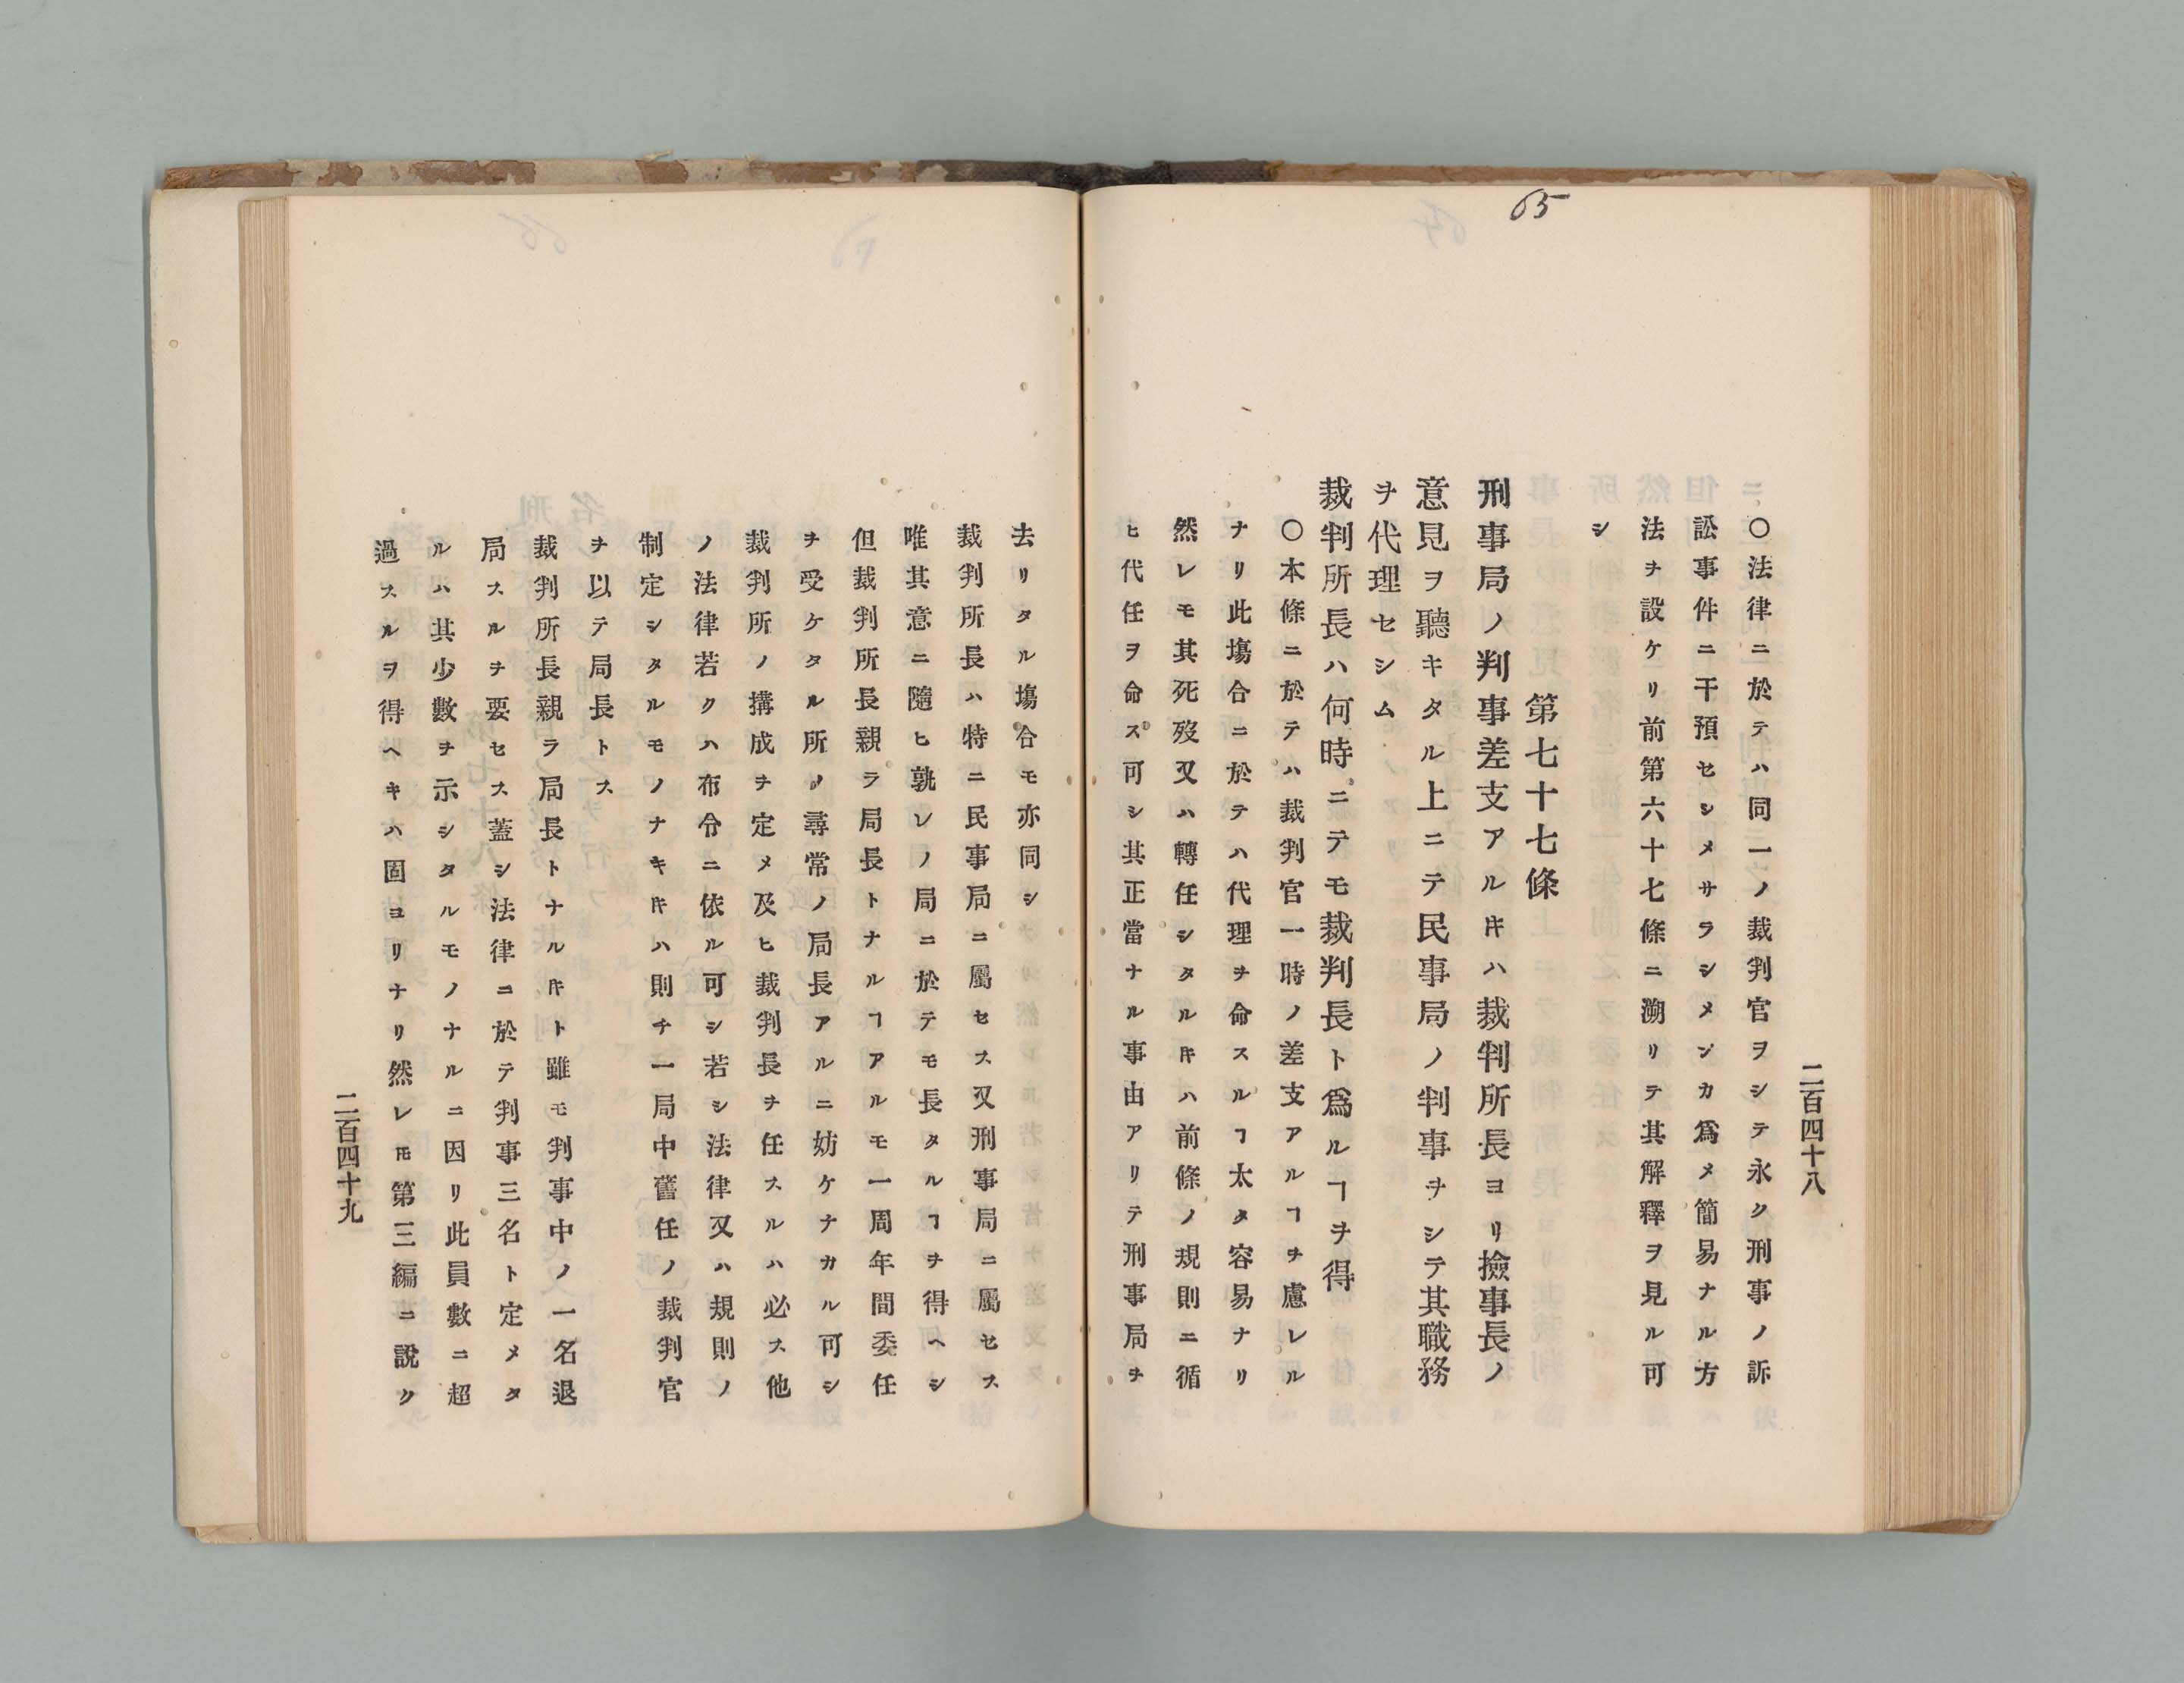 65
二百四十八
〇法律ニ於テハ同一ノ裁判官ヲシテ永ク刑事ノ訴
訟事件ニ干預セシメサラシメンカ爲メ簡易ナル方
法ヲ設ケリ前第六十七條ニ溯リテ其解釋ヲ見ル可
シ
第七十七條
刑事局ノ判事差支アルキハ裁判所長ヨリ撿事長ノ
意見ヲ聽キタル上ニテ民事局ノ判事ヲシテ其職務
ヲ代理セシム
裁判所長ハ何時ニテモ裁判長ト爲ルヿヲ得
〇本條ニ於テハ裁判官一時ノ差支アルヿヲ慮レル
ナリ此塲合ニ於テハ代理ヲ命スルヿ太タ容易ナリ
然レモ其死歿又ハ轉任シタルキハ前條ノ規則ニ循
ヒ代任ヲ命ス可シ其正當ナル事由アリテ刑事局ヲ
去リタル塲合モ亦同シ
裁判所長ハ特ニ民事局ニ屬セス又刑事局ニ屬セス
唯其意ニ隨ヒ孰レノ局ニ於テモ長タルヿヲ得ヘシ
但裁判所長親ラ局長トナルヿアルモ一周年間委任
ヲ受ケタル所ノ尋常ノ局長アルニ妨ケナカル可シ
裁判所ノ搆成ヲ定メ及ヒ裁判長ヲ任スルハ必ス他
ノ法律若クハ布令ニ依ル可シ若シ法律又ハ規則ノ
制定シタルモノナキキハ則チ一局中舊任ノ裁判官
ヲ以テ局長トス
裁判所長親ラ局長トナルキト雖モ判事中ノ一名退
局スルヲ要セス蓋シ法律ニ於テ判事三名ト定メタ
ルハ其少數ヲ示シタルモノナルニ因リ此員數ニ超
過スルヲ得ヘキハ固ヨリナリ然レモ第三編ニ說ク
二百四十九